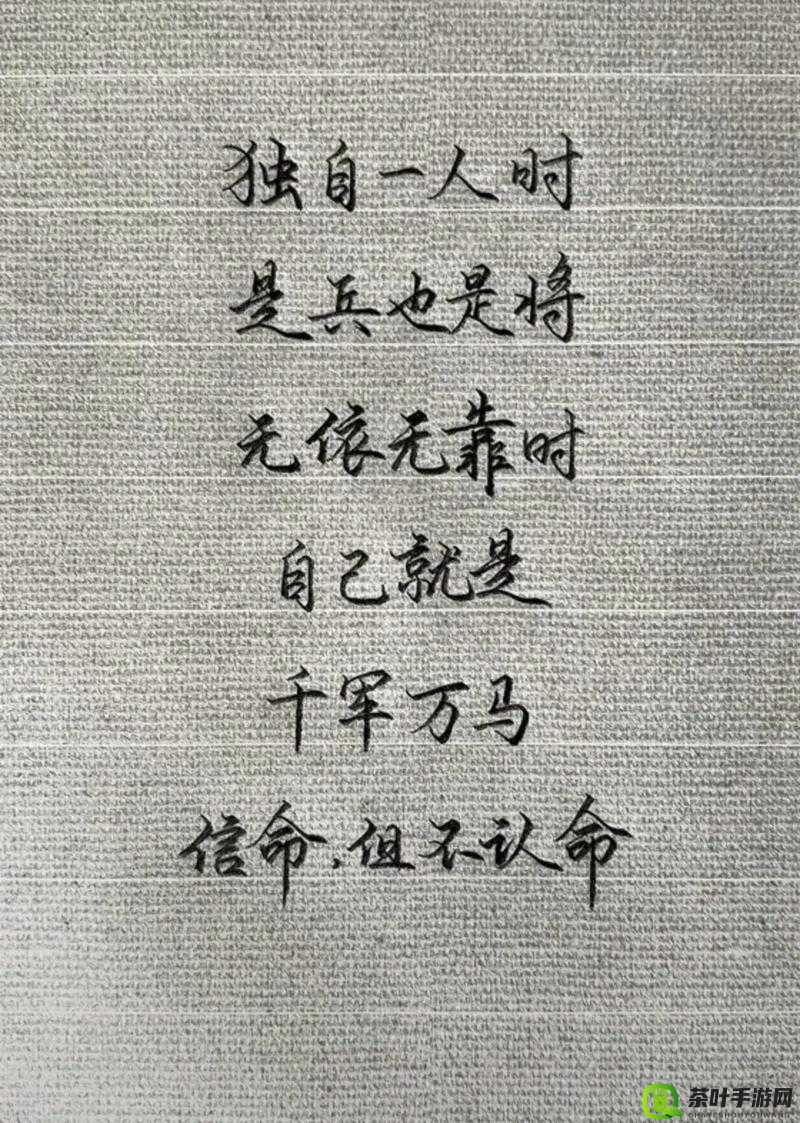 独自一人时
是兵也是将
无依无靠时
自己就是
千军万马
信命,但不认命
茶叶手游网